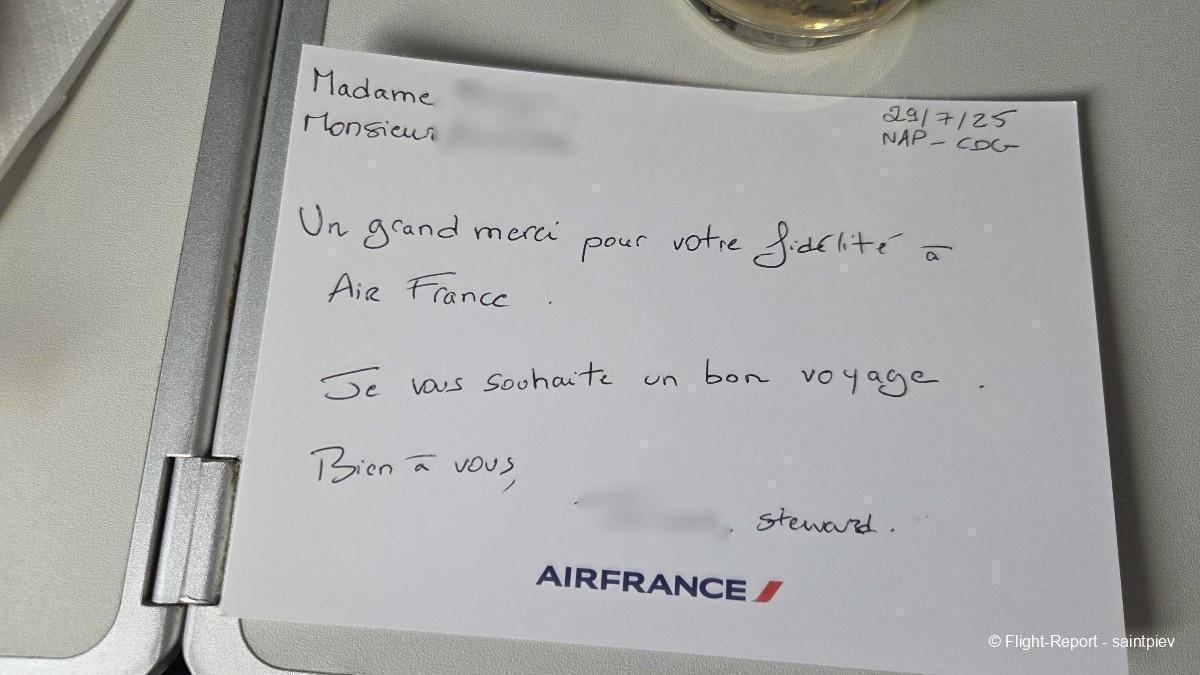 Madame
Monsieur
29/7/25
NAP - CDG
Un grand merci pour votre fidélité à
Air France .
Je vous souhaite un bon voyage .
Bien à vous,
, steward .
AIRFRANCE
© Flight-Report - saintpiev